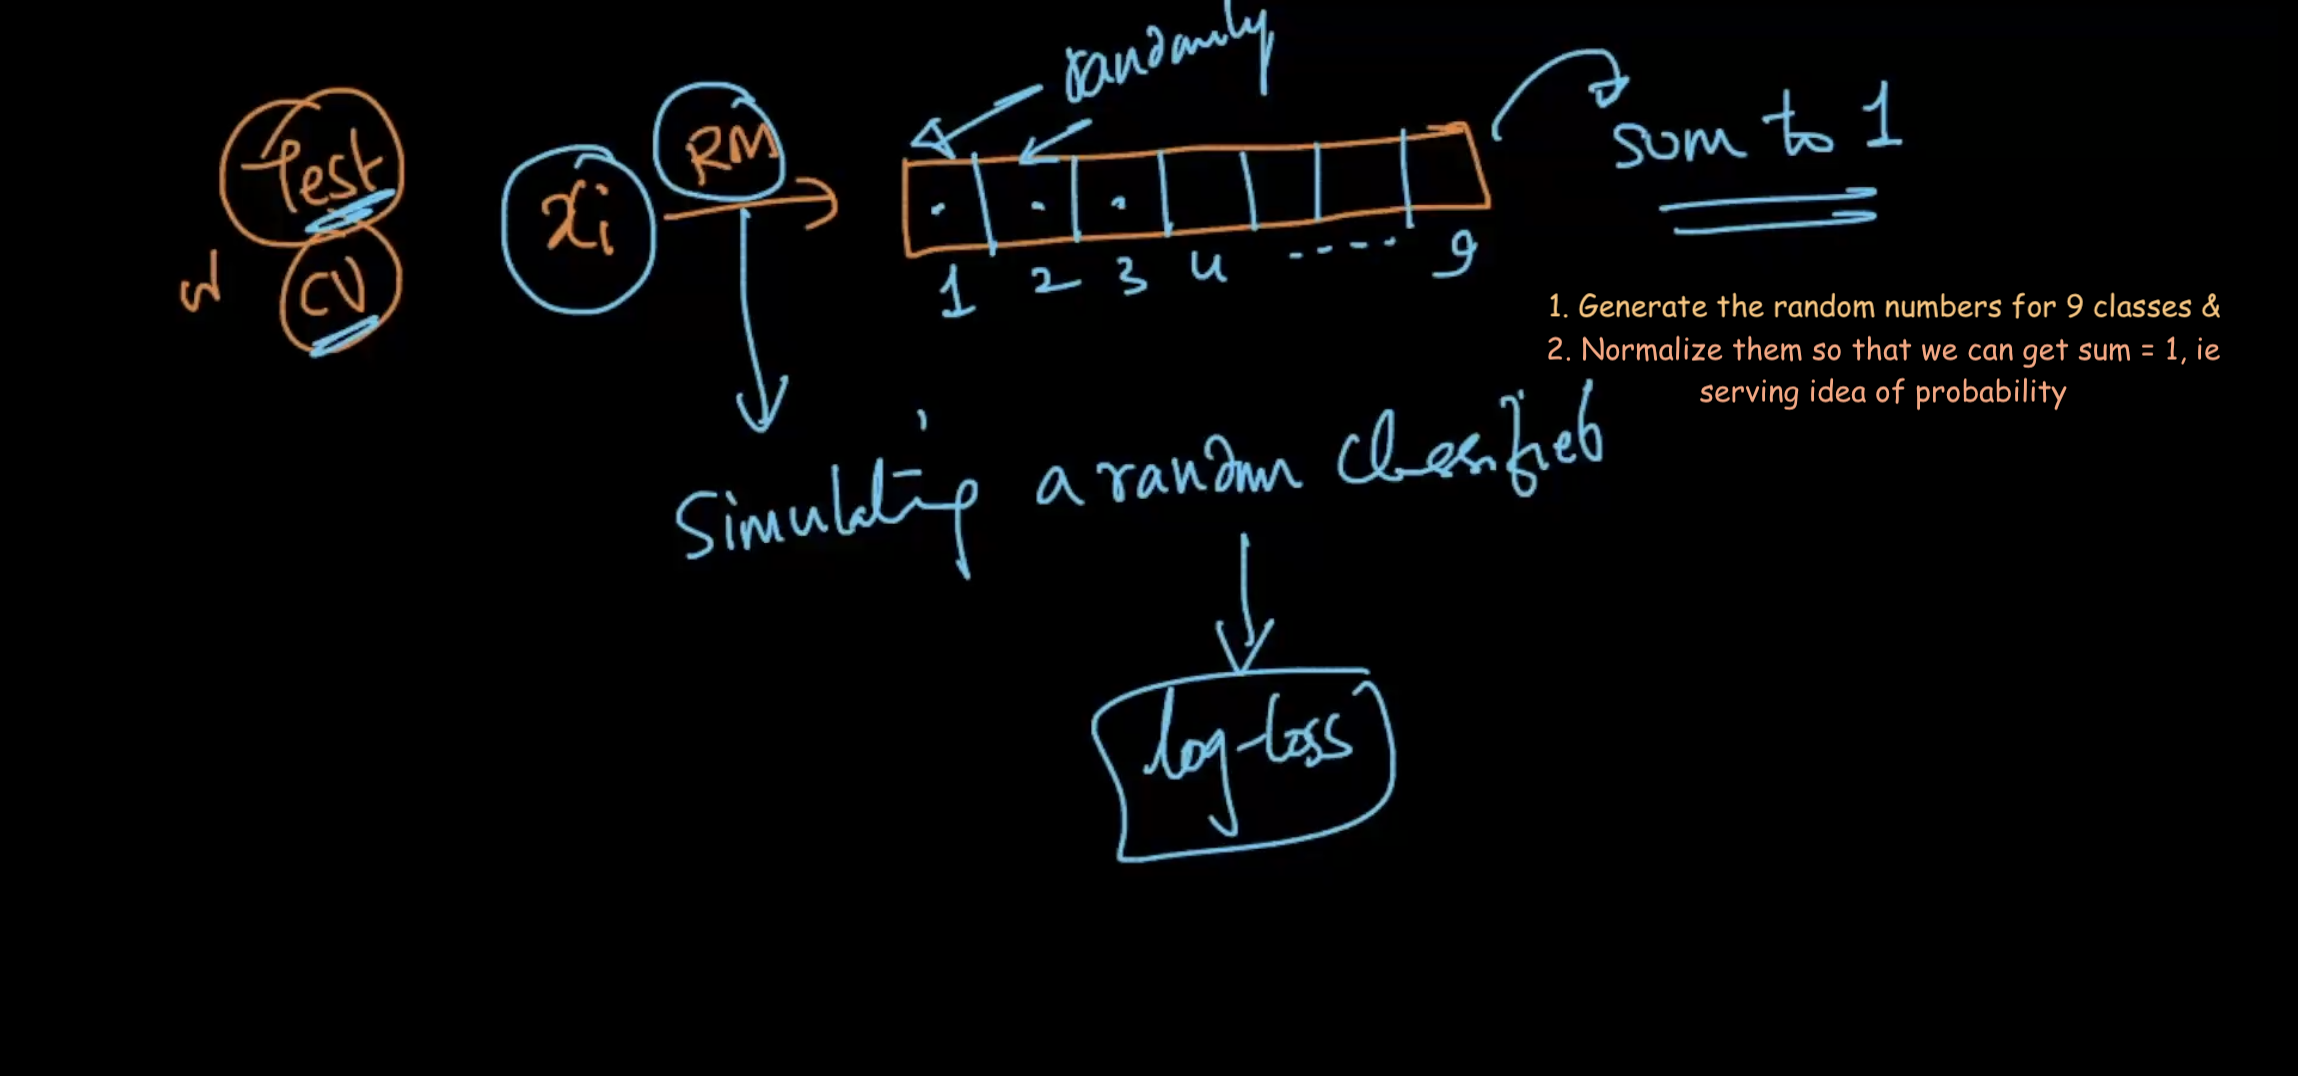 randomly
Test
RM
sum to 1
xi
CV
1 2 3 4 ---- 9
1. Generate the random numbers for 9 classes &
2. Normalize them so that we can get sum = 1, ie
serving idea of probability
Simulating a random classifier
log-loss